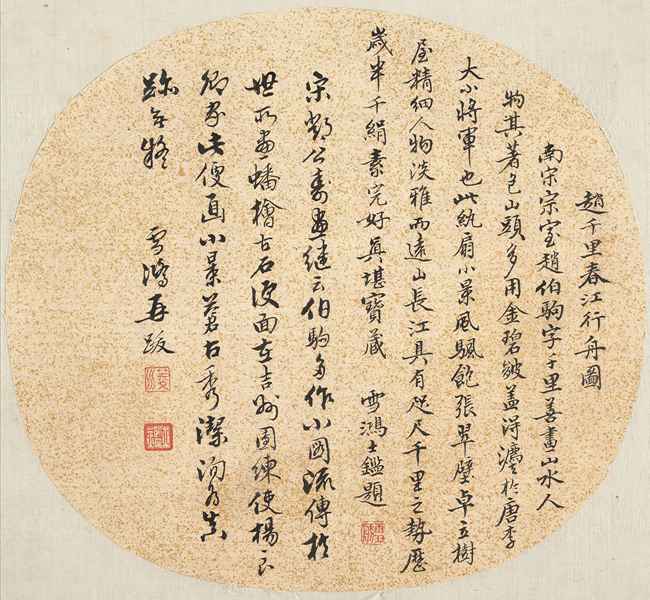 趙千里春江行舟圖
南宋宗室趙伯駒字千里善畫山水人
物其著色山頭多用金碧皴蓋淂濃於唐李
大小將軍也此紈扇小景風颿飽張翠壁卓立樹
屋精細人物淡雅而遠山長江具有咫尺千里之勢歷
歲半千絹素完好真堪寶藏 雪鴻士鑑題
宋鄧公壽畫繼云伯駒多作小圖流傳於
世所畫蟠檜古石便面在吉州團練使楊良
卿家此便面小景蒼古秀潔洵為真
跡無疑 雪鴻再跋